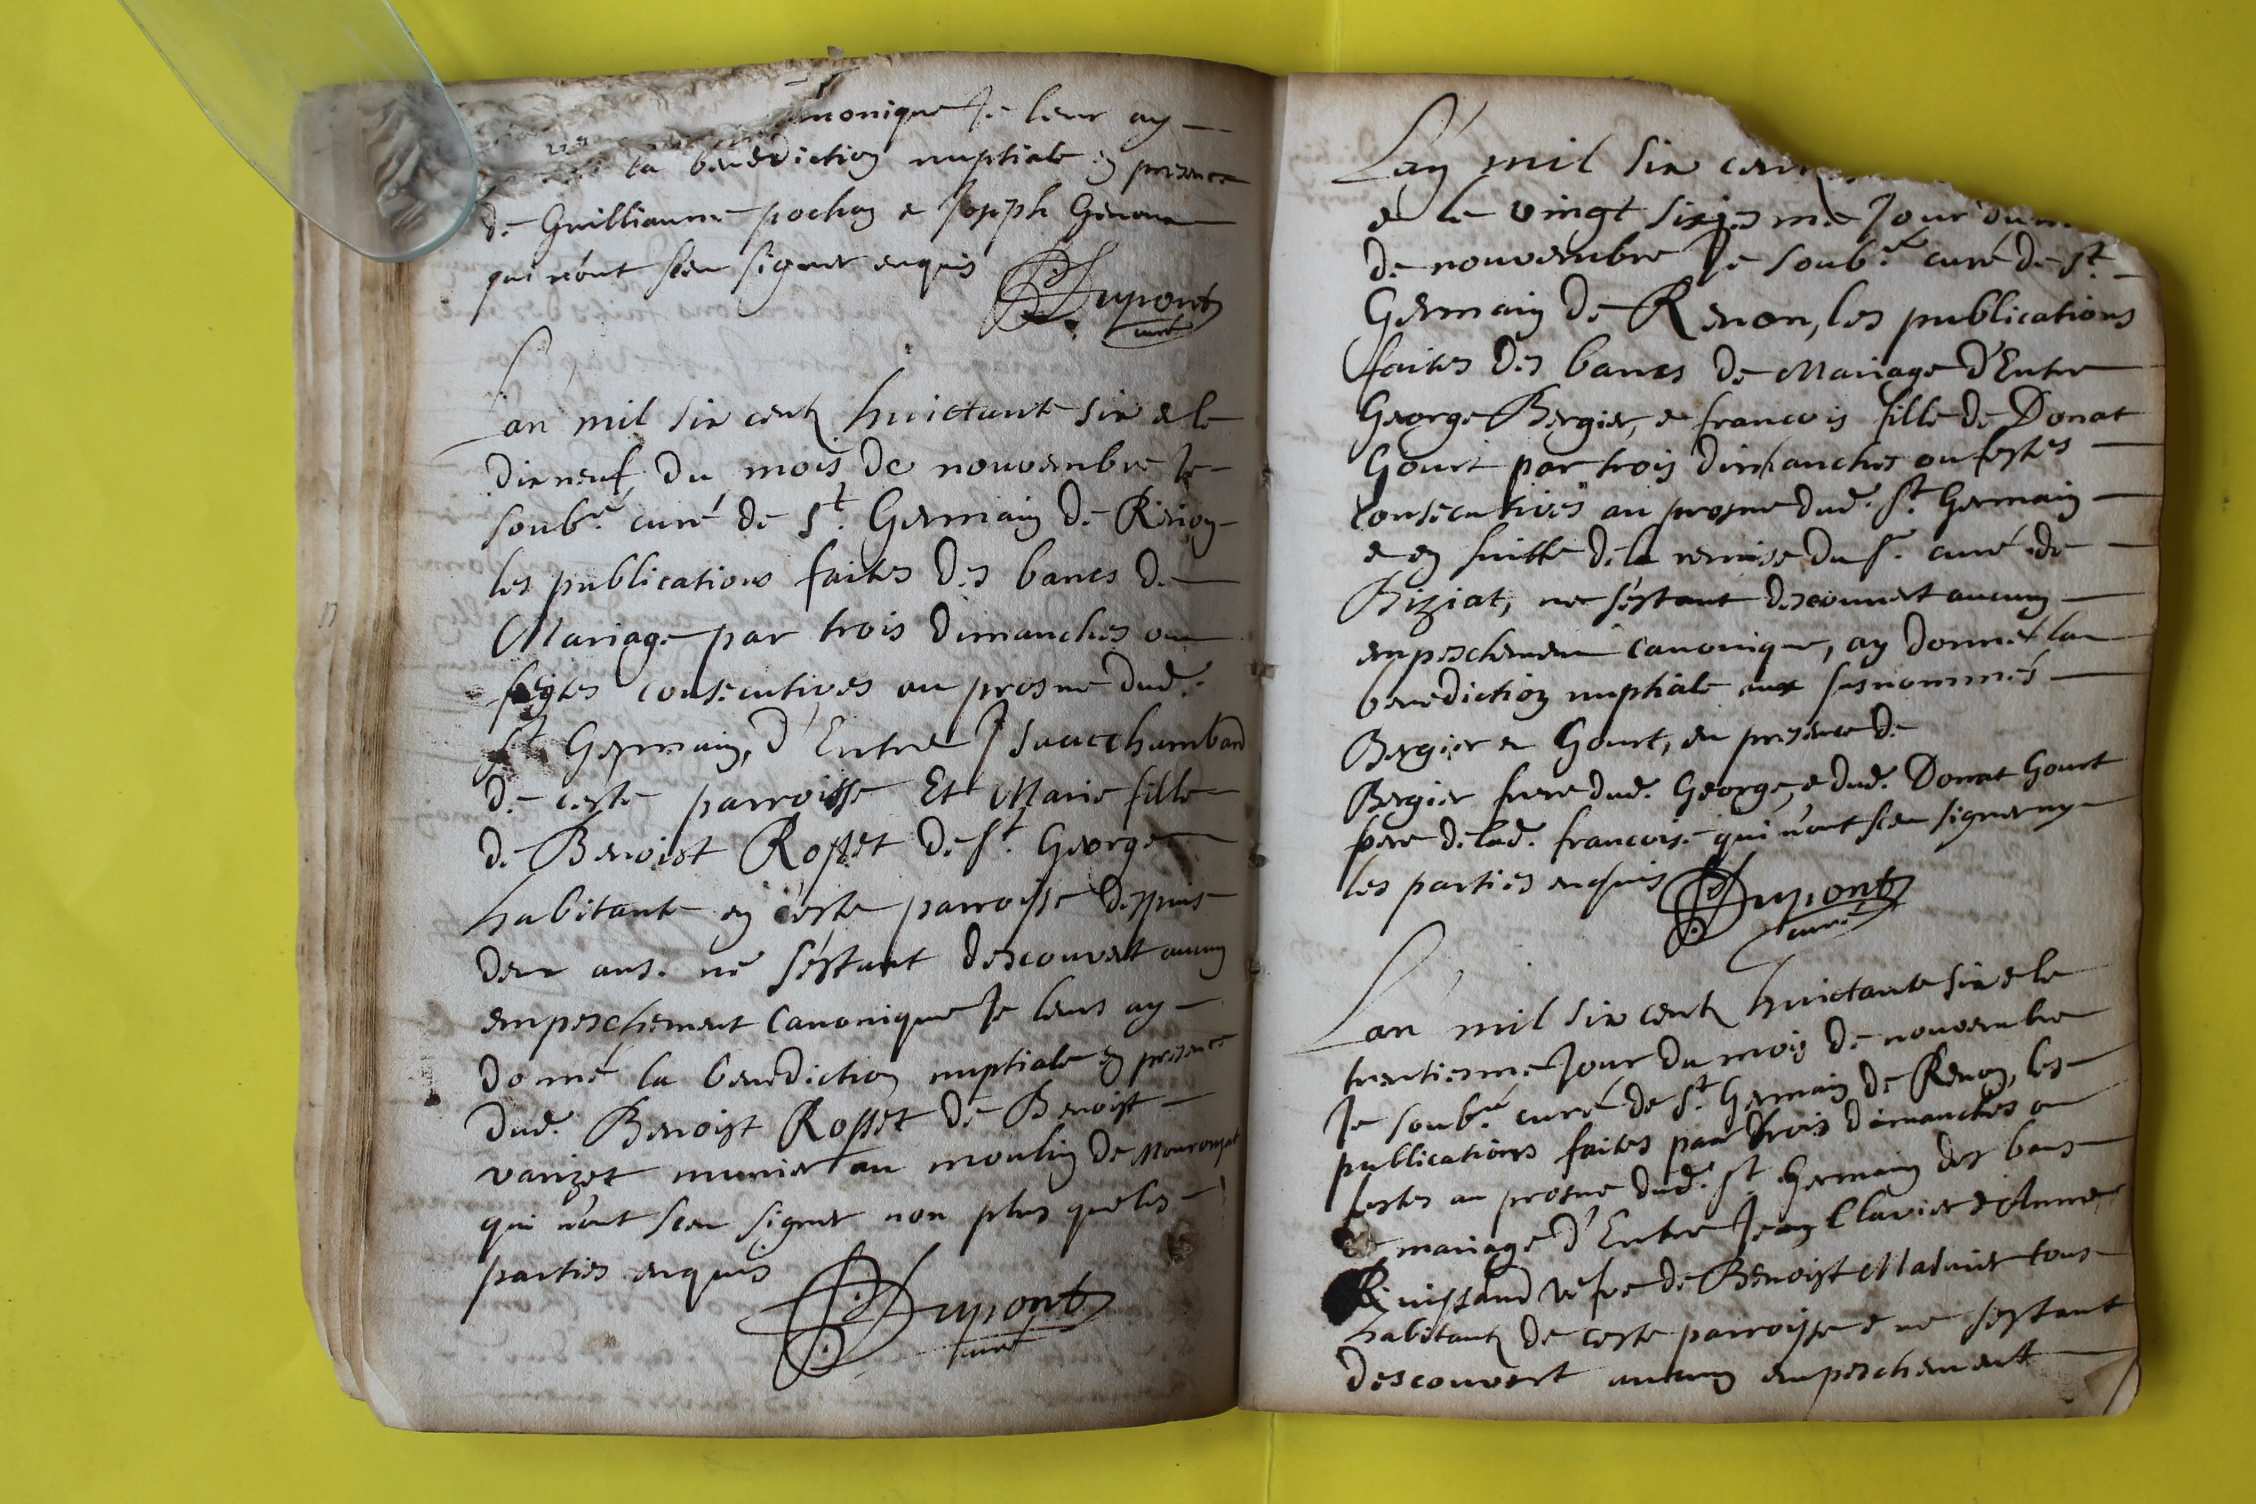 monique Je leur ay
la benediction nuptiale en presence
de Guilliaume pochon e Joseph
qui n'ont sceu signer enquis
Dupont
curé
L'an mil six cent huictante six e le
dixneuf du mois de nouvembre Je
soub.é curé de St. Germain de Renon
les publications faites des bancs de
Mariage par trois dimanches ou
festes consecutives au prosne dud.
St Germain, d'Entre Isaac chambard
de ceste parroisse Et Marie fille
de Benoist Rosset de St. George
habitante en ceste parroisse deppuis
deux ans. ne s'estant descouvert aucun
empeschement Canonique Je leurs ay
donné la benediction nuptiale en presence
dud. Benoist Rosset de Benoist
varizet munier au moulin de
qui n'ont sceu signer non plus que les
parties enquis
Dupont
curé
L'an mil six cent
e le vingt sixiesme Jour du
de nouvembre Je soub.é curé de St.
Germain de Renon, les publications
faites des bancs de Mariage d'Entre
George Bergier, e francois fille de Donat
Gourt par trois dimanches ou festes
consecutives au prosne dud. St. Germain
e en suitte de la remise du Sr. curé de
Biziat, ne s'estant descouvert aucun
empeschement canonique, ay donné la
benediction nuptiale aux susnommés
Bergier e Gourt, en presence de
Bergier frere dud. George, e dud. Donat Gourt
pere de lad. francoise qui n'ont sceu signer ny
les parties enquis
Dupont
curé
L'an mil six cent huictante six e le
trentiesme Jour du mois de nouvembre
Je soub.é curé de St. Germain de Renon, les
publications faites par trois dimanches ou
festes au prosne dud. St. Germain des bans
de mariage d'Entre Jean Clavier e Anne
vefve de Benoist tous
habitants de ceste parroisse e ne s'estant
descouvert aucun empeschement